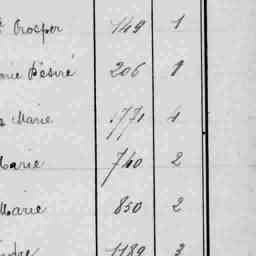 Prosper 149 1
Désiré 206 1
Marie 1771 4
Marie 740 2
Marie 850 2
1189 3